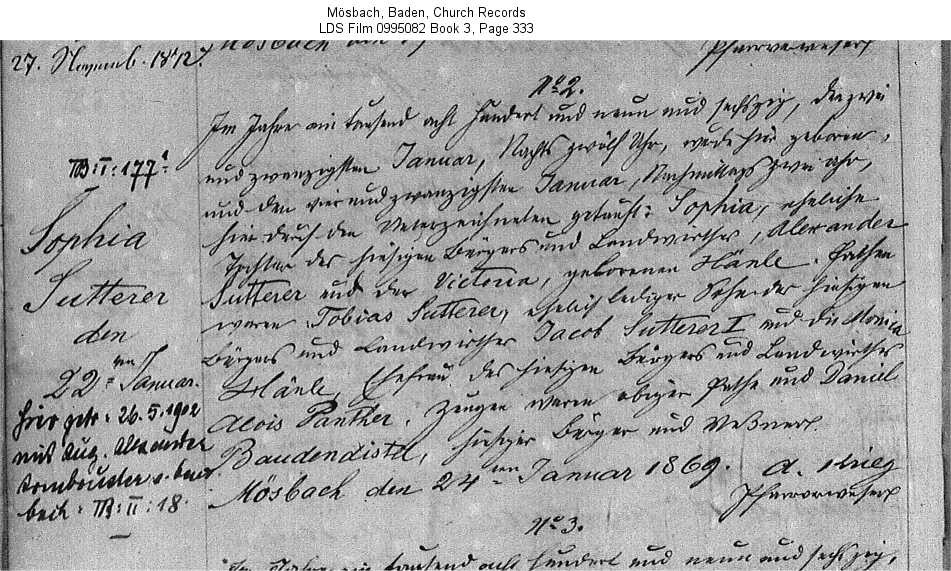 Mösbach, Baden, Church Records
LDS Film 0995082 Book 3, Page 333
27. Novemb. 1872.
Mösbach den
Pfarrverweser
No 2.
Im Jahre ein tausend acht hundert und neun und sechszig, den zwei
und zwanzigsten Januar, Nachts zwölf Uhr, wurde hier geboren,
und den vier und zwanzigsten Januar, Nachmittags zwei Uhr,
hier durch den Unterzeichneten getauft: Sophia, eheliche
Tochter des hiesigen Bürgers und Landwirthes, Alexander
Sutterer und der Victoria, geborenen Hänle. Pathen
waren Tobias Sutterer, ehelich lediger Sohn des hiesigen
Bürgers und Landwirthes Jacob Sutterer I und die Monica
Hänle, Ehefrau des hiesigen Bürgers und Landwirthes
Alois Panther. Zeugen waren obiger Pathe und Daniel
Baudendistel, hiesiger Bürger und Meßner.
Mösbach den 24ten Januar 1869. A. Krieg
Pfarrverweser
TB: I: 177
Sophia
Sutterer
den
22ten Januar.
hier getr. 26.5.1902
mit Aug. Alexander
TB: II: 18.
No 3.
Im Jahre ein tausend acht hundert und neun und sechszig,